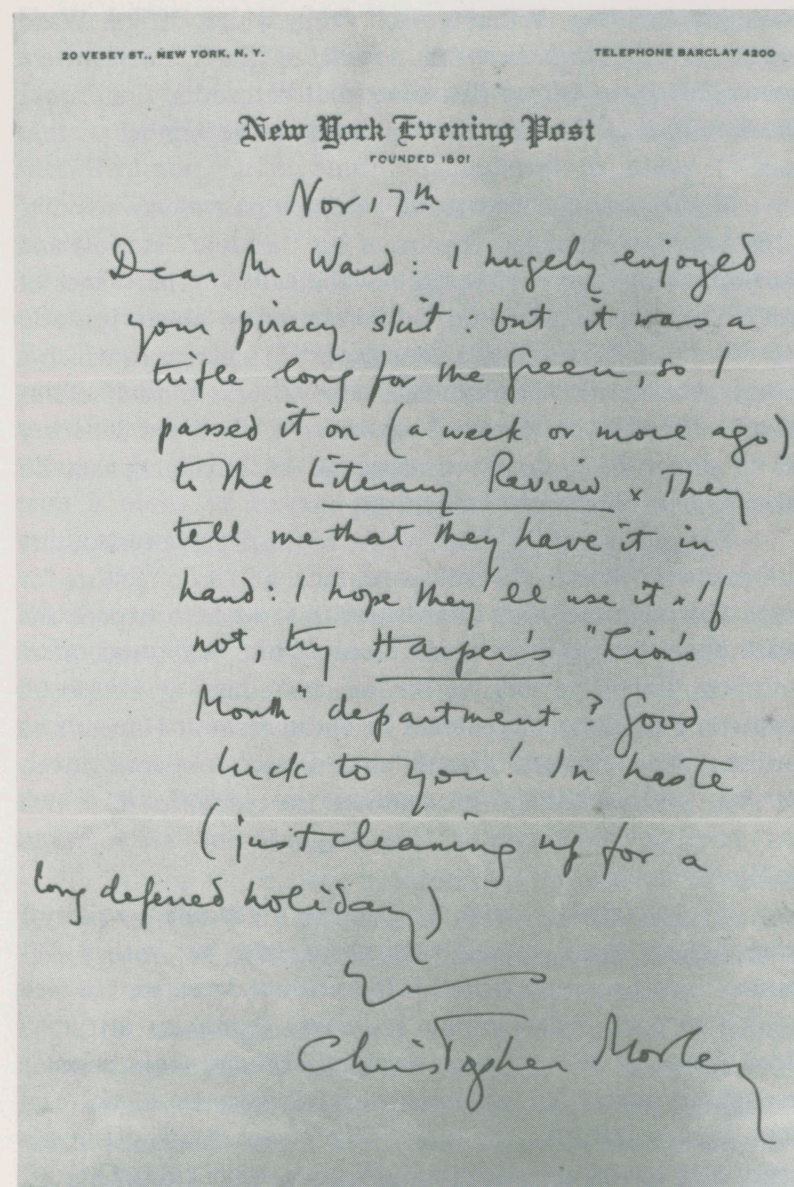 20 VESEY ST., NEW YORK, N. Y. TELEPHONE BARCLAY 4200
New York Evening Post
FOUNDED 1801
Nov 17th
Dear Mr Ward: I hugely enjoyed
your piracy skit: but it was a
trifle long for the Green, so I
passed it on (a week or more ago)
to the Literary Review x They
tell me that they have it in
hand: I hope they'll use it x If
not, try Harper's "Lion's
Mouth" department? Good
luck to you! In haste
(just cleaning up for a
long deferred holiday)
Christopher Morley